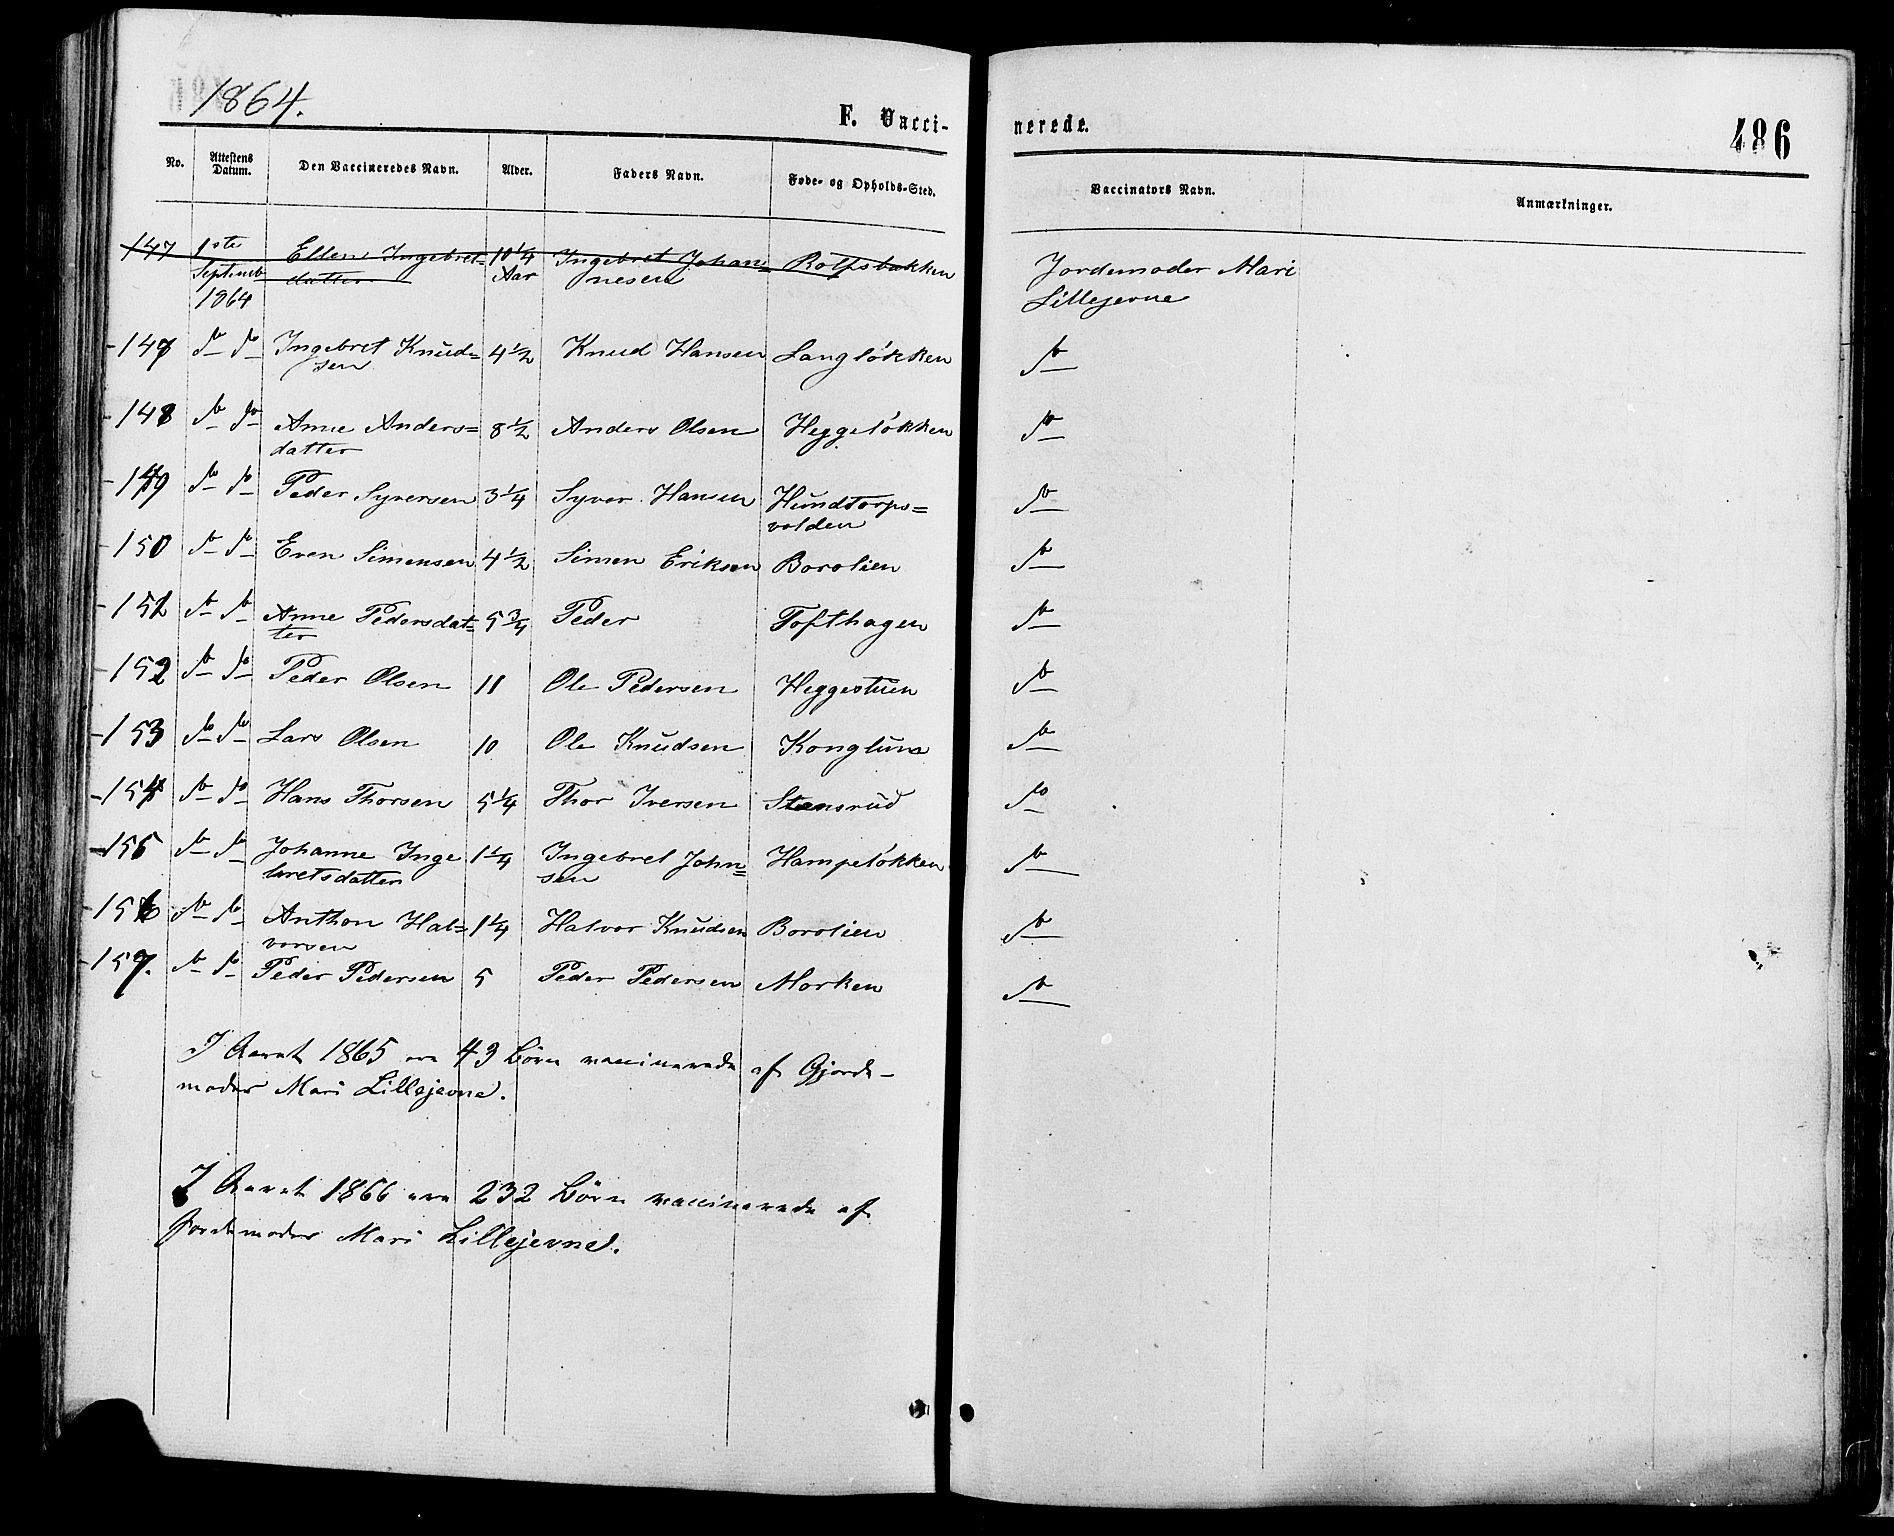 1864.
F. Vacci-
nerede.
486
No. Attestens Datum. Den Vaccineredes Navn. Alder. Faders Navn. Føde- og Opholds-Sted. Vaccinators Navn. Anmærkninger.
147 1ste Ellen Ingebret- 10 1/4 Ingebret Johan- Rolfsbakken Jordemoder Mari
Septemb datter Aar nesen Lillejevne
1864
147 do do Ingebret Knud= 4 1/2 Knud Hansen Langløkken do
sen
148 do do Anne Anders= 8 1/2 Anders Olsen Heggeløkken do
datter
149 do do Peder Syversen 3 1/4 Syver Hansen Hundtorps= do
volden
150 do do Even Simensen 4 1/2 Simen Eriksen Borolien do
151 do do Anne Pedersdat= 5 3/4 Peder Tofthagen do
ter
152 do do Peder Olsen 11 Ole Pedersen Heggestuen do
153 do do Lars Olsen 10 Ole Knudsen Konglund do
154 do do Hans Thorsen 5 1/4 Thor Iversen Stensrud do
155 do do Johanne Inge 1 1/4 Ingebret John= Hampeløkken do
bretsdatter sen
156 do do Anthon Hal= 1 1/4 Halvor Knudsen Borolien do
vorsen
157. do do Peder Pedersen 5 Peder Pedersen Morken do
I Aaret 1865 ere 43 Børn vaccinerede af Gjorde-
moder Mari Lillejevne.
I Aaret 1866 ere 232 Børn vaccinerede af
Jordemoder Mari Lillejevne.